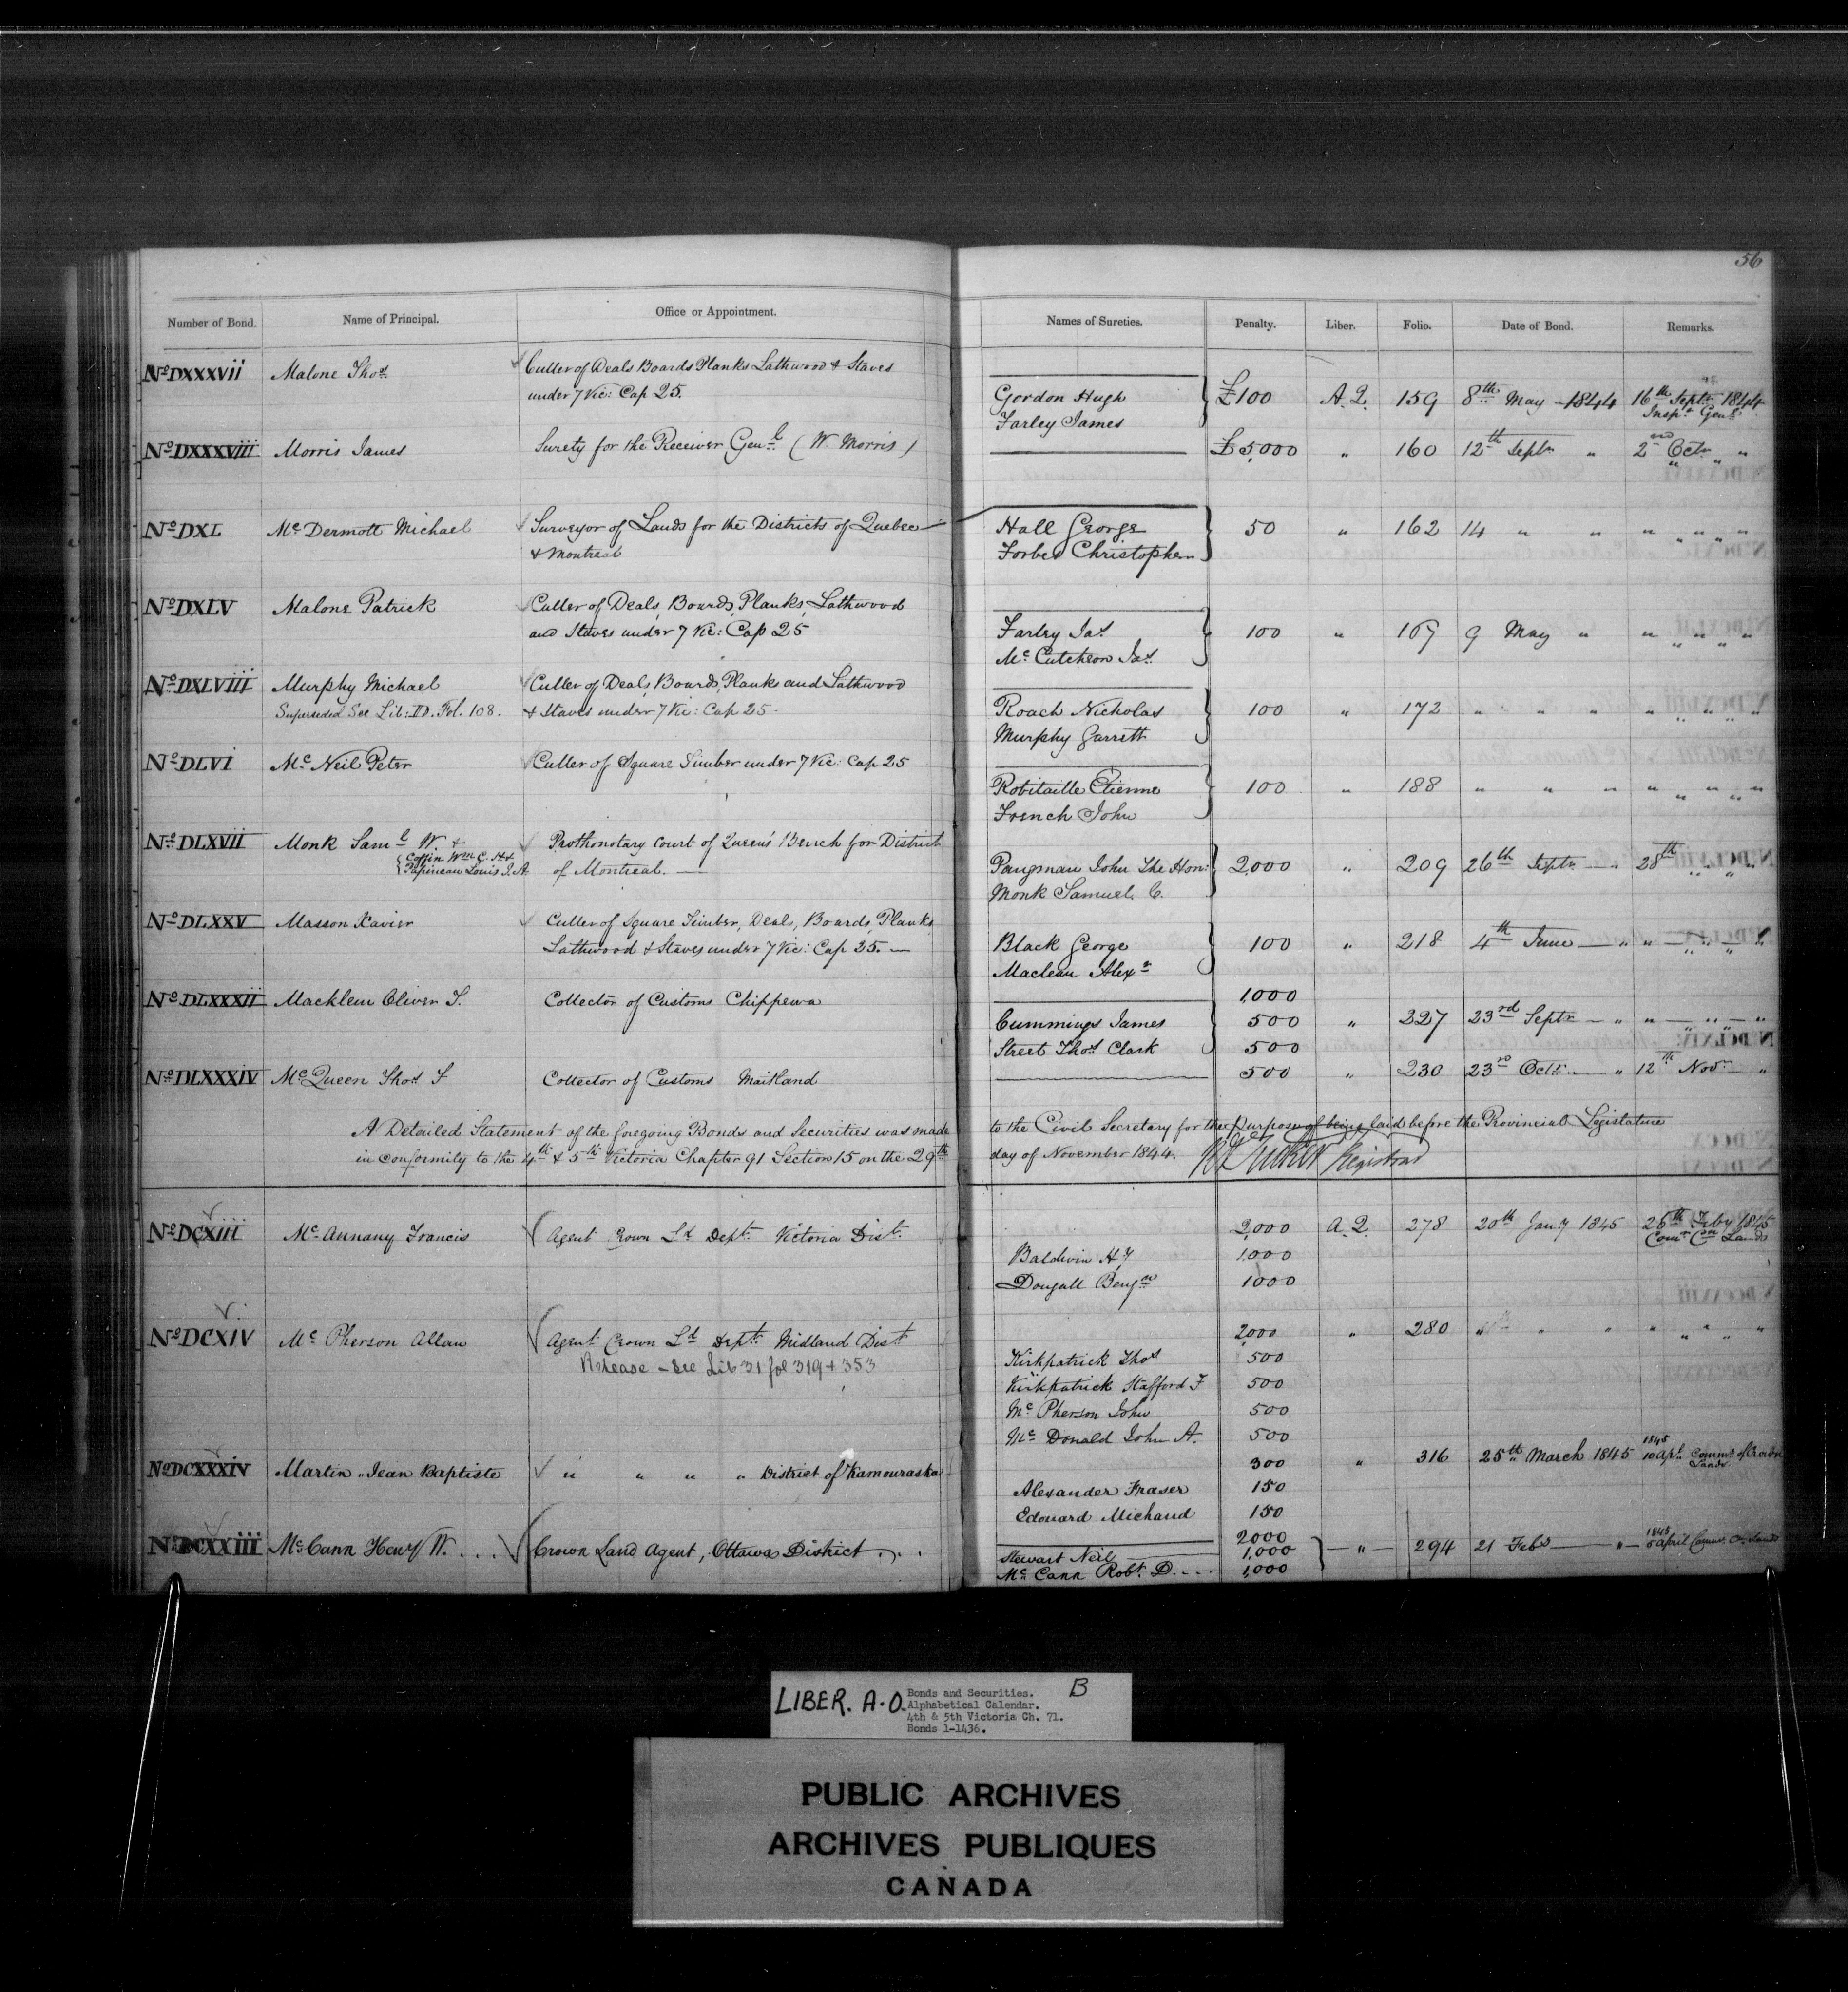 56
Number of Bond. Name of Principal. Office or Appointment. Names of Sureties. Penalty. Liber. Folio. Date of Bond. Remarks.
No DXXXVii Malone Thos. Culler of Deals Boards Planks Lathwood & Staves
under 7 Vic: Cap 25.
Gordon Hugh £100 A.2. 159 8th May 1844 16th Septr 1844
Farley James Inspr Genl
No DXXXViii Morris James Surety for the Receiver Genl (W. Morris) £5,000 " 160 12th Septr " 2nd Octr " "
No DXL Mc Dermott Michael Surveyor of Lands for the Districts of Quebec
& Montreal
Hall George 50 " 162 14 " " " " " "
Forbes Christopher
No DXLV Malone Patrick Culler of Deals, Boards, Planks, Lathwood
and Staves under 7 Vic: Cap 25
Farley Jas. 100 " 167 9 May " " " " "
Mc Cutcheon Jas.
No DXLViii Murphy Michael Culler of Deals, Boards, Planks and Lathwood
Superseded See Lib: ID. Fol. 108. & Staves under 7 Vic: Cap 25.
Roach Nicholas 100 " 172 " " " " " " "
Murphy Garrett
No DLVi Mc Neil Peter Culler of Square Timber under 7 Vic: Cap 25
Robitaille Etienne 100 " 188 " " " " " " "
French John
No DLXVII Monk Saml W. & Prothonotary Court of Queen's Bench for District
Coffin Wm C. H &
Papineau Louis J. A. of Montreal.
Pangman John The Hon: 2,000 " 209 26th Septr " 28th " " "
Monk Samuel C.
No DLXXV Masson Xavier Culler of Square Timber, Deals, Boards, Planks,
Lathwood & Staves under 7 Vic: Cap 25.
Black George 100 " 218 4th June " " " " "
Maclean Alexr
No DLXXXII Macklem Oliver T. Collector of Customs Chippewa 1,000
Cummings James 500 " 227 23rd Septr " " " "
Street Thos. Clark 500
No DLXXXIV Mc Queen Thos. F Collector of Customs Maitland 500 " 230 23rd Octr " 12th Novr "
A Detailed Statement of the foregoing Bonds and Securities was made to the Civil Secretary for the Purpose of being laid before the Provincial Legislature
in conformity to the 4th & 5th Victoria Chapter 91 Section 15 on the 29th day of November 1844. Registrar
No DCXiii Mc Annany Francis Agent Crown Ld Dept. Victoria Dist. 2,000 A.2. 278 20th Jany 1845 25th Feby 1845
Baldwin H.Y 1.000
Dougall Benjn 1000
No DCXIV Mc Pherson Allan Agent Crown Ld Dept. Midland Dist. 2000 " 280 " " " " " " "
Release - See Lib 31 fol 319 + 353
Kirkpatrick Thos 500
Kirkpatrick Stafford F 500
Mc Pherson John 500
Mc Donald John A. 500
No DCXXXIV Martin Jean Baptiste " " " " District of Kamouraska 300 " 316 25th March 1845 1845 10 Apl Commr of Crown
Lands
Alexander Fraser 150
Edouard Michaud 150
No DCXXIII Mc Cann Henry W. . . . Crown Land Agent, Ottawa District . . . 2000
Stewart Neil 1,000 " 294 21 Feby " 1845 5 April Commr Cn Lands
Mc Cann Robt. D. . . . 1,000
LIBER. A.O. B
Bonds and Securities.
Alphabetical Calendar.
4th & 5th Victoria Ch. 71.
Bonds 1-1436.
PUBLIC ARCHIVES
ARCHIVES PUBLIQUES
CANADA